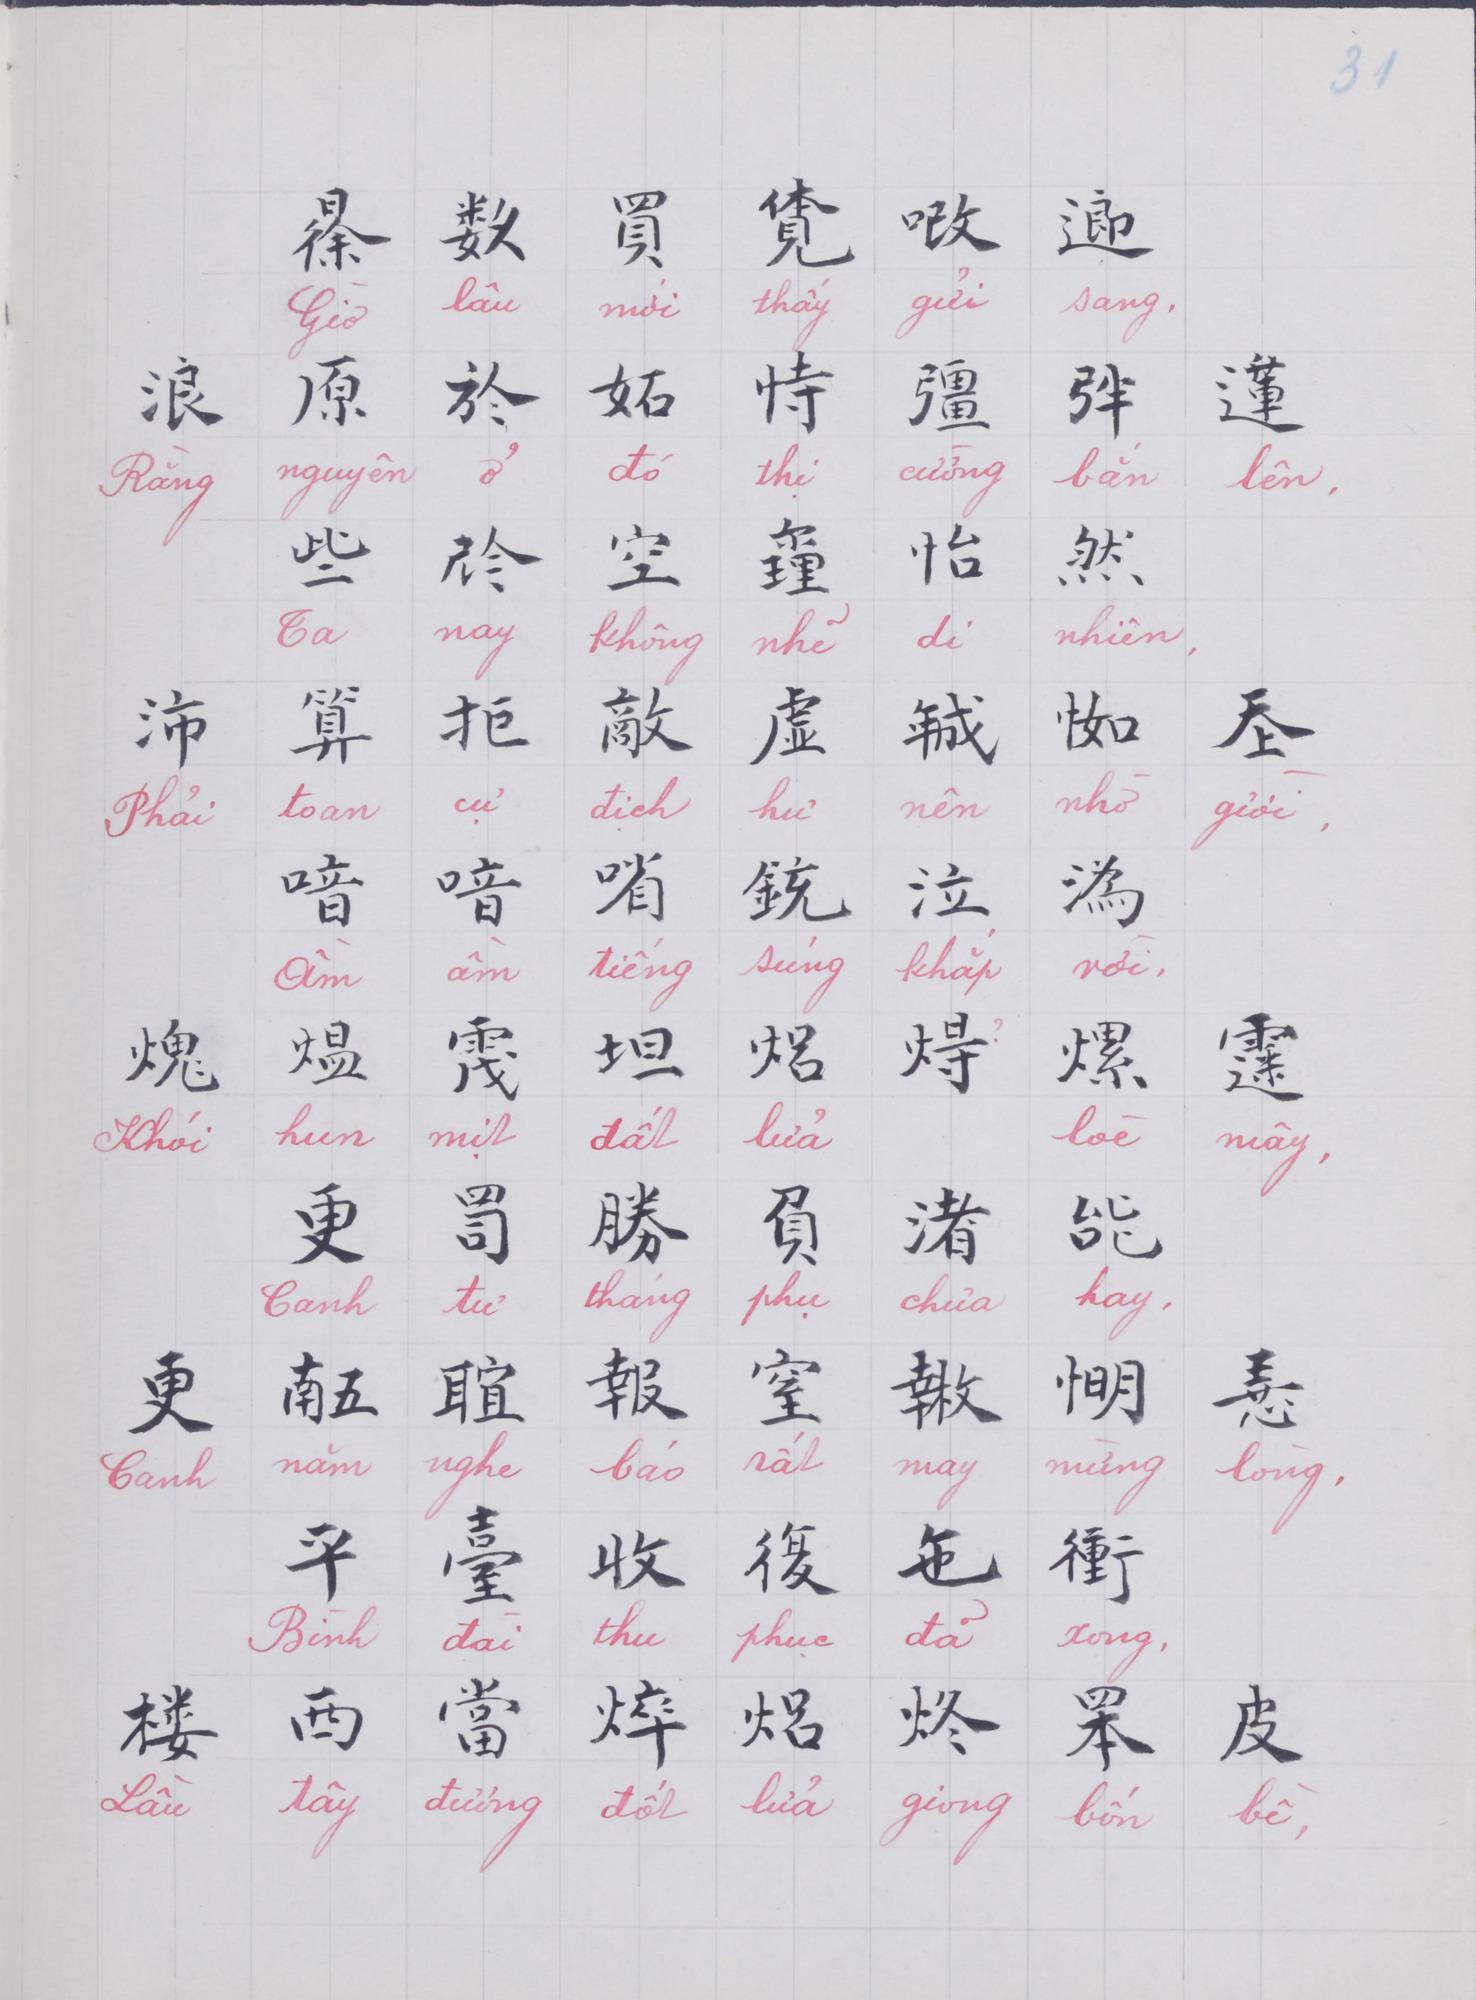 31
數買 𧡊 𠳚 𨖅
Giờ lâu mới thấy gửi sang.
浪原於妬恃彊弹𨕭
Rằng nguyên ở đó thị cường bắn lên,
些空怡然
Ta nay không nhẽ di nhiên,
沛算拒敵虛𢧚𢘾𡗶
Phải toan cự địch hư nên nhờ giời,
喑喑㗂銃泣潙
Ầm ầm tiếng súng khắp vời.
煨坦焒㷵𩄲
Khói hun mịt đất lửa loè mây,
更勝負渚能
Canh tư tháng phụ chưa hay.
更𠄼𦖑報窒𢜠𢚸
Canh năm nghe báo rất may mừng lòng,
平臺收復㐌衝
Bình đài thu phục đã xong,
楼西當焠焒𤇮𦊚皮
Lầu tây đương đốt lửa giong bốn bề,